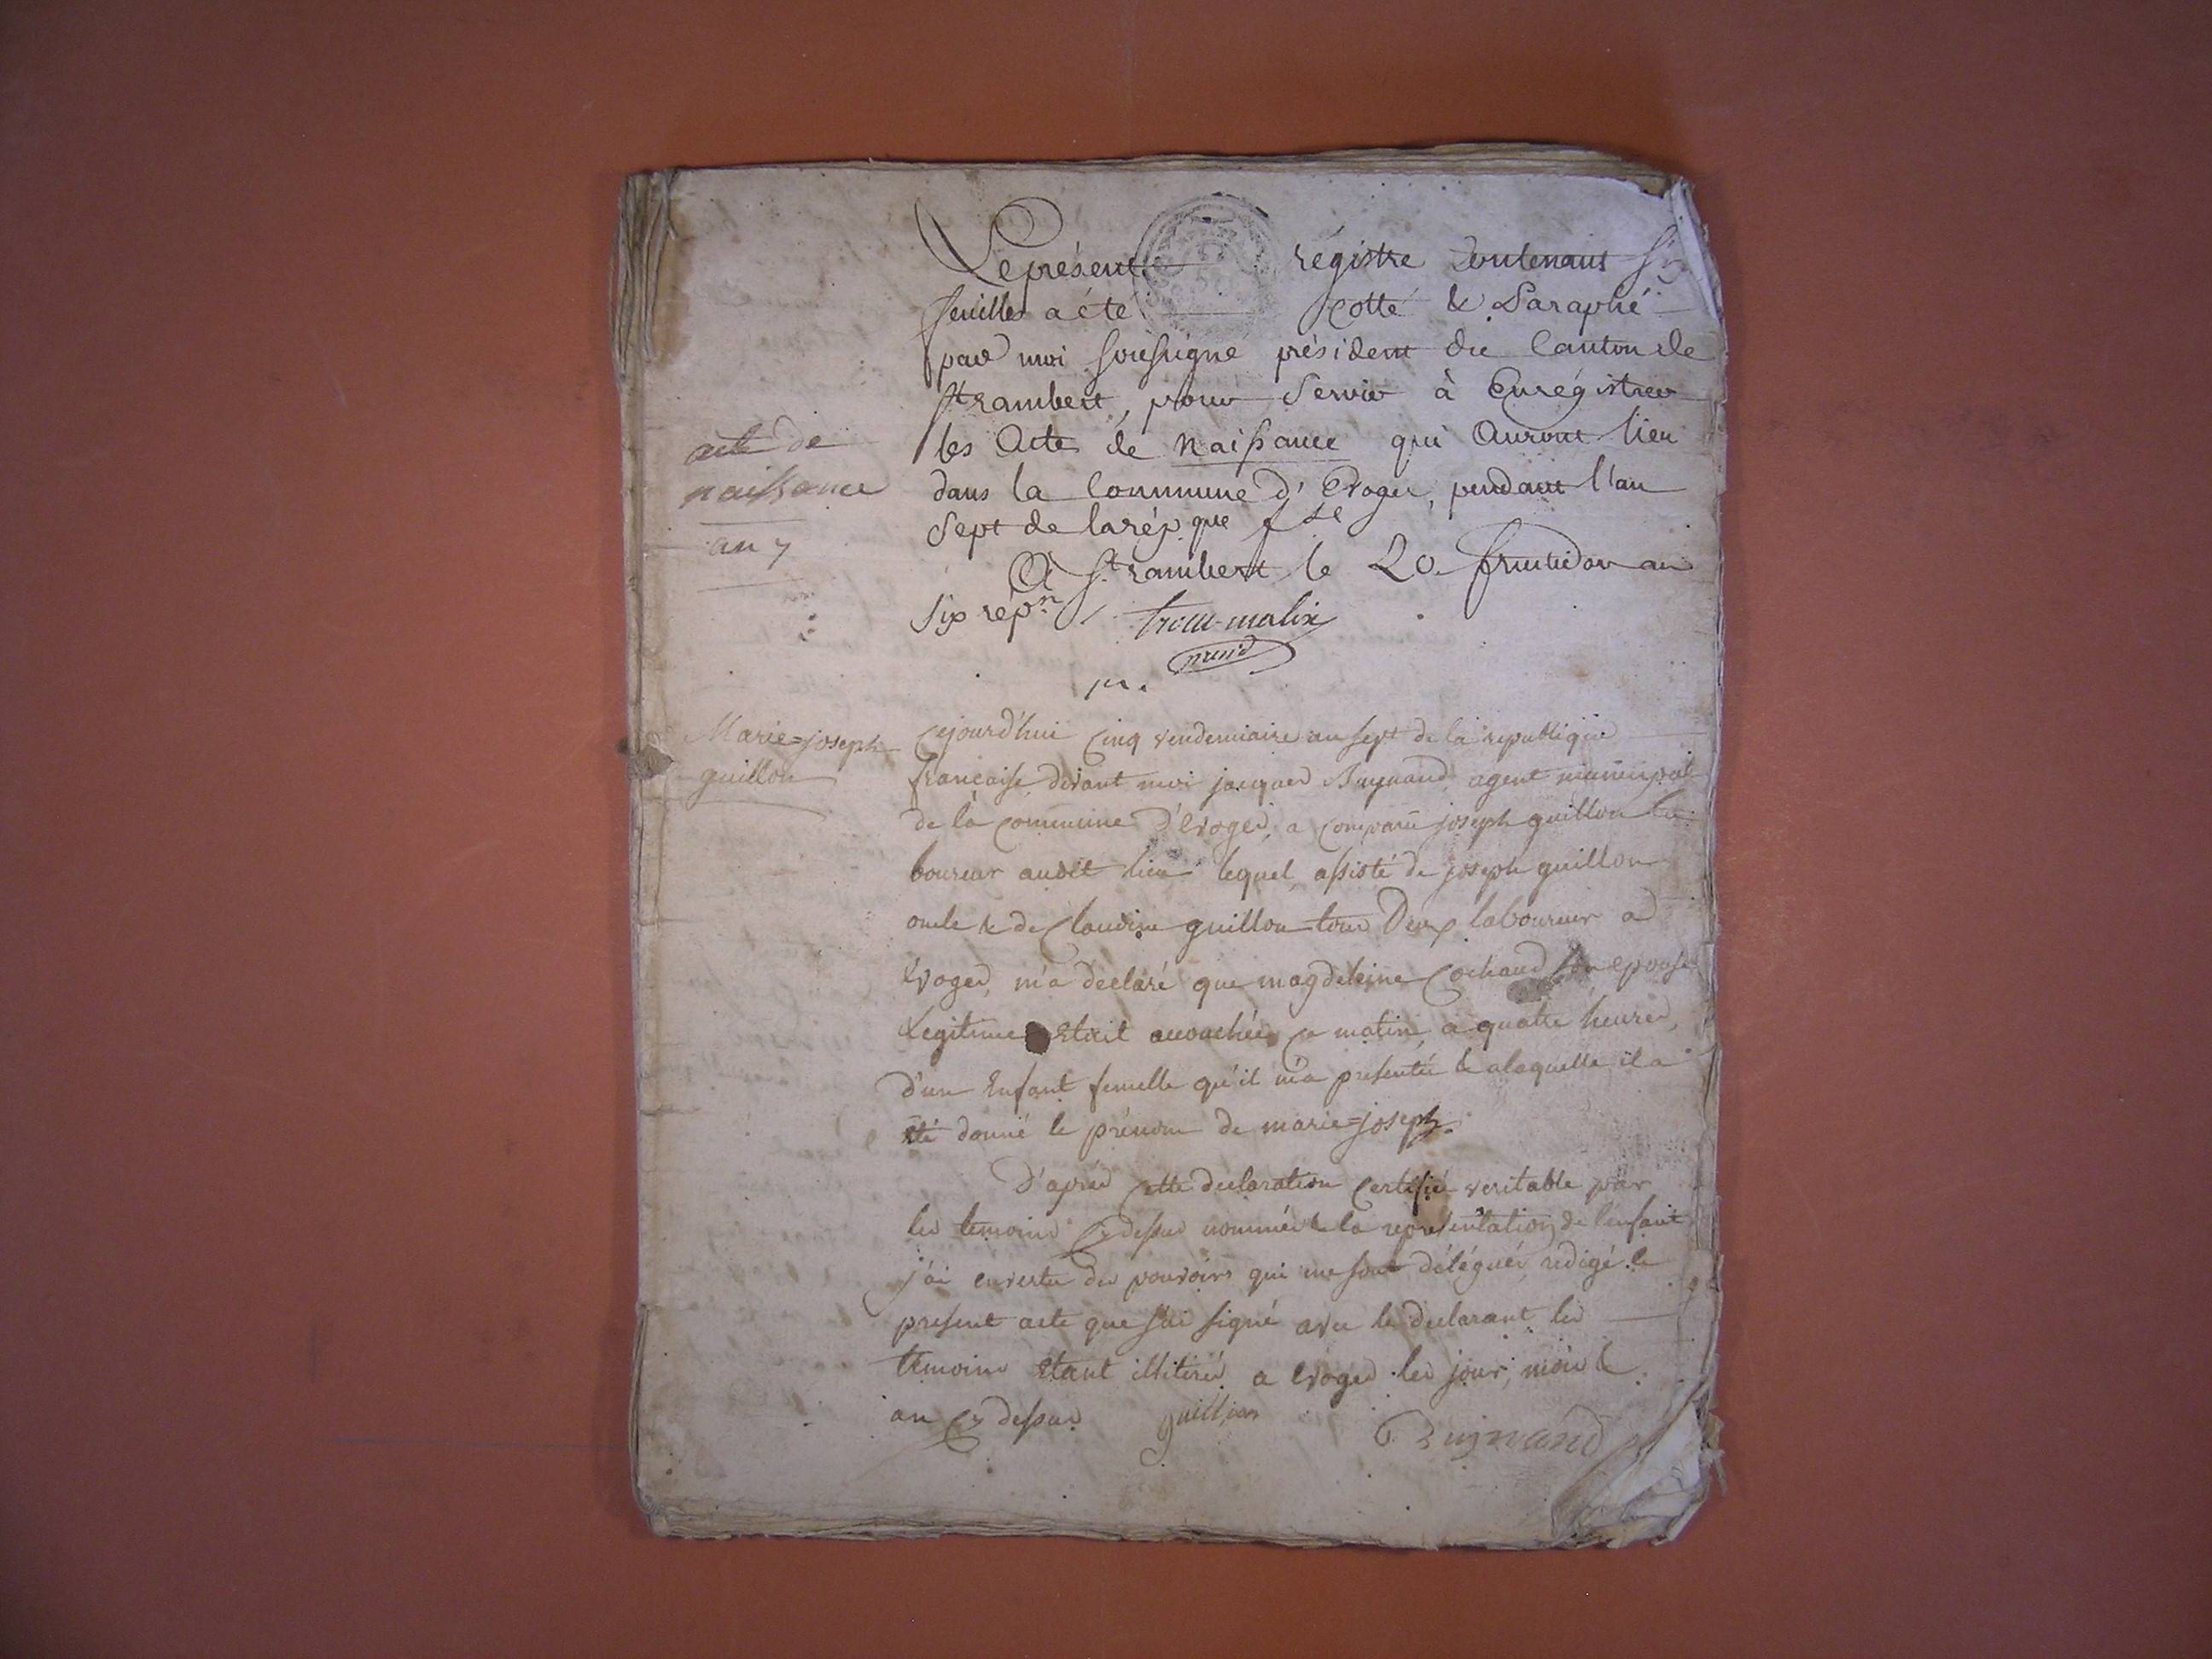 Le présent registre Contenant
feuilles a été cotté & Paraphé
par moi soussigné président du Canton de
St rambert, pour Servir à Enrégistrer
les Actes de Naissance qui Auront lieu
dans la Commune d'Evoges, pendant l'an
Sept de la rép. que f se
A St. rambert le 20. fructidor an
Six répn.
trocu-malix
présid
acte de
naissance
an 7
Marie=joseph
guillon
Cejourd'hui Cinq vendemiaire an sept de la republique
française, devant moi jacques Buynand, agent municipal
de la commune d'Evoges, a comparu joseph guillon la
boureur audit lieu lequel, assisté de joseph guillon
oncle & de Claudine guillon tous Deux laboureur a
Evoges, m'a declaré que magdeleine Cochaud son epouse
Legitime etait accouchée ce matin, a quatre heures,
d'un Enfant femelle qu'il m'a presentée & alaquelle il a
été donné le prénom de marie=joseph.
D'après cette declaration Certifiée veritable par
les temoins Cy dessus nommés & la representation de l'enfant
j'ai en vertu des pouvoirs qui me sont délégués, redigé le
present acte que j'ai signé avec le declarant les
témoins etant illiterés a Evoges les jour, mois &
an Cy dessus guillion Buynand